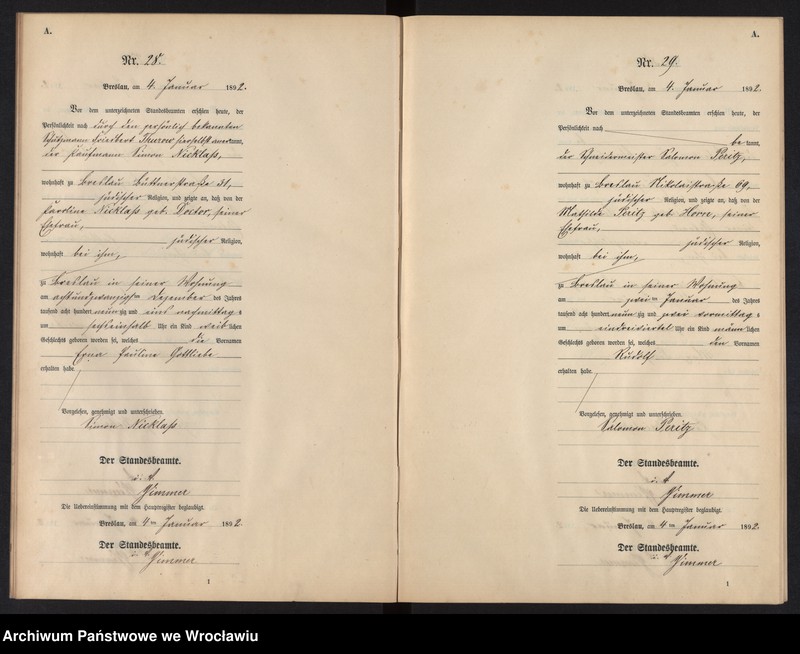 A.
Nr. 28.
Breslau, am 4. Januar 1892.
Vor dem unterzeichneten Standesbeamten erschien heute, der
Persönlichkeit nach durch den persönlich bekannten
Schutzmann Thurow hierselbst anerkannt,
der Kaufmann Simon Nicklass,
wohnhaft zu Breslau Büttnerstraße 31,
jüdischer Religion, und zeigte an, daß von der
Karoline Nicklass geb. Doctor, seiner
Ehefrau,
jüdischer Religion,
wohnhaft bei ihm,
zu Breslau in seiner Wohnung
am achtundzwanzigsten Dezember des Jahres
tausend acht hundert neunzig und eins nachmittags
um sechseinhalb Uhr ein Kind weiblichen
Geschlechts geboren worden sei, welches die Vornamen
Erna Pauline Gottliebe
erhalten habe.
Vorgelesen, genehmigt und unterschrieben.
Simon Nicklass
Der Standesbeamte.
Zimmer
Die Uebereinstimmung mit dem Hauptregister beglaubigt.
Breslau, am 4ten Januar 1892.
Der Standesbeamte.
Zimmer
1
A.
Nr. 29.
Breslau, am 4. Januar 1892.
Vor dem unterzeichneten Standesbeamten erschien heute, der
Persönlichkeit nach
bekannt,
der Schneidermeister Salomon Peritz,
wohnhaft zu Breslau Nikolaistraße 69,
jüdischer Religion, und zeigte an, daß von der
Mathilde Peritz geb. Horn, seiner
Ehefrau,
jüdischer Religion,
wohnhaft bei ihm,
zu Breslau in seiner Wohnung
am zweiten Januar des Jahres
tausend acht hundert neunzig und zwei vormittags
um eindreiviertel Uhr ein Kind männlichen
Geschlechts geboren worden sei, welches den Vornamen
Rudolf
erhalten habe.
Vorgelesen, genehmigt und unterschrieben.
Salomon Peritz
Der Standesbeamte.
Zimmer
Die Uebereinstimmung mit dem Hauptregister beglaubigt.
Breslau, am 4ten Januar 1892.
Der Standesbeamte.
Zimmer
1
Archiwum Państwowe we Wrocławiu